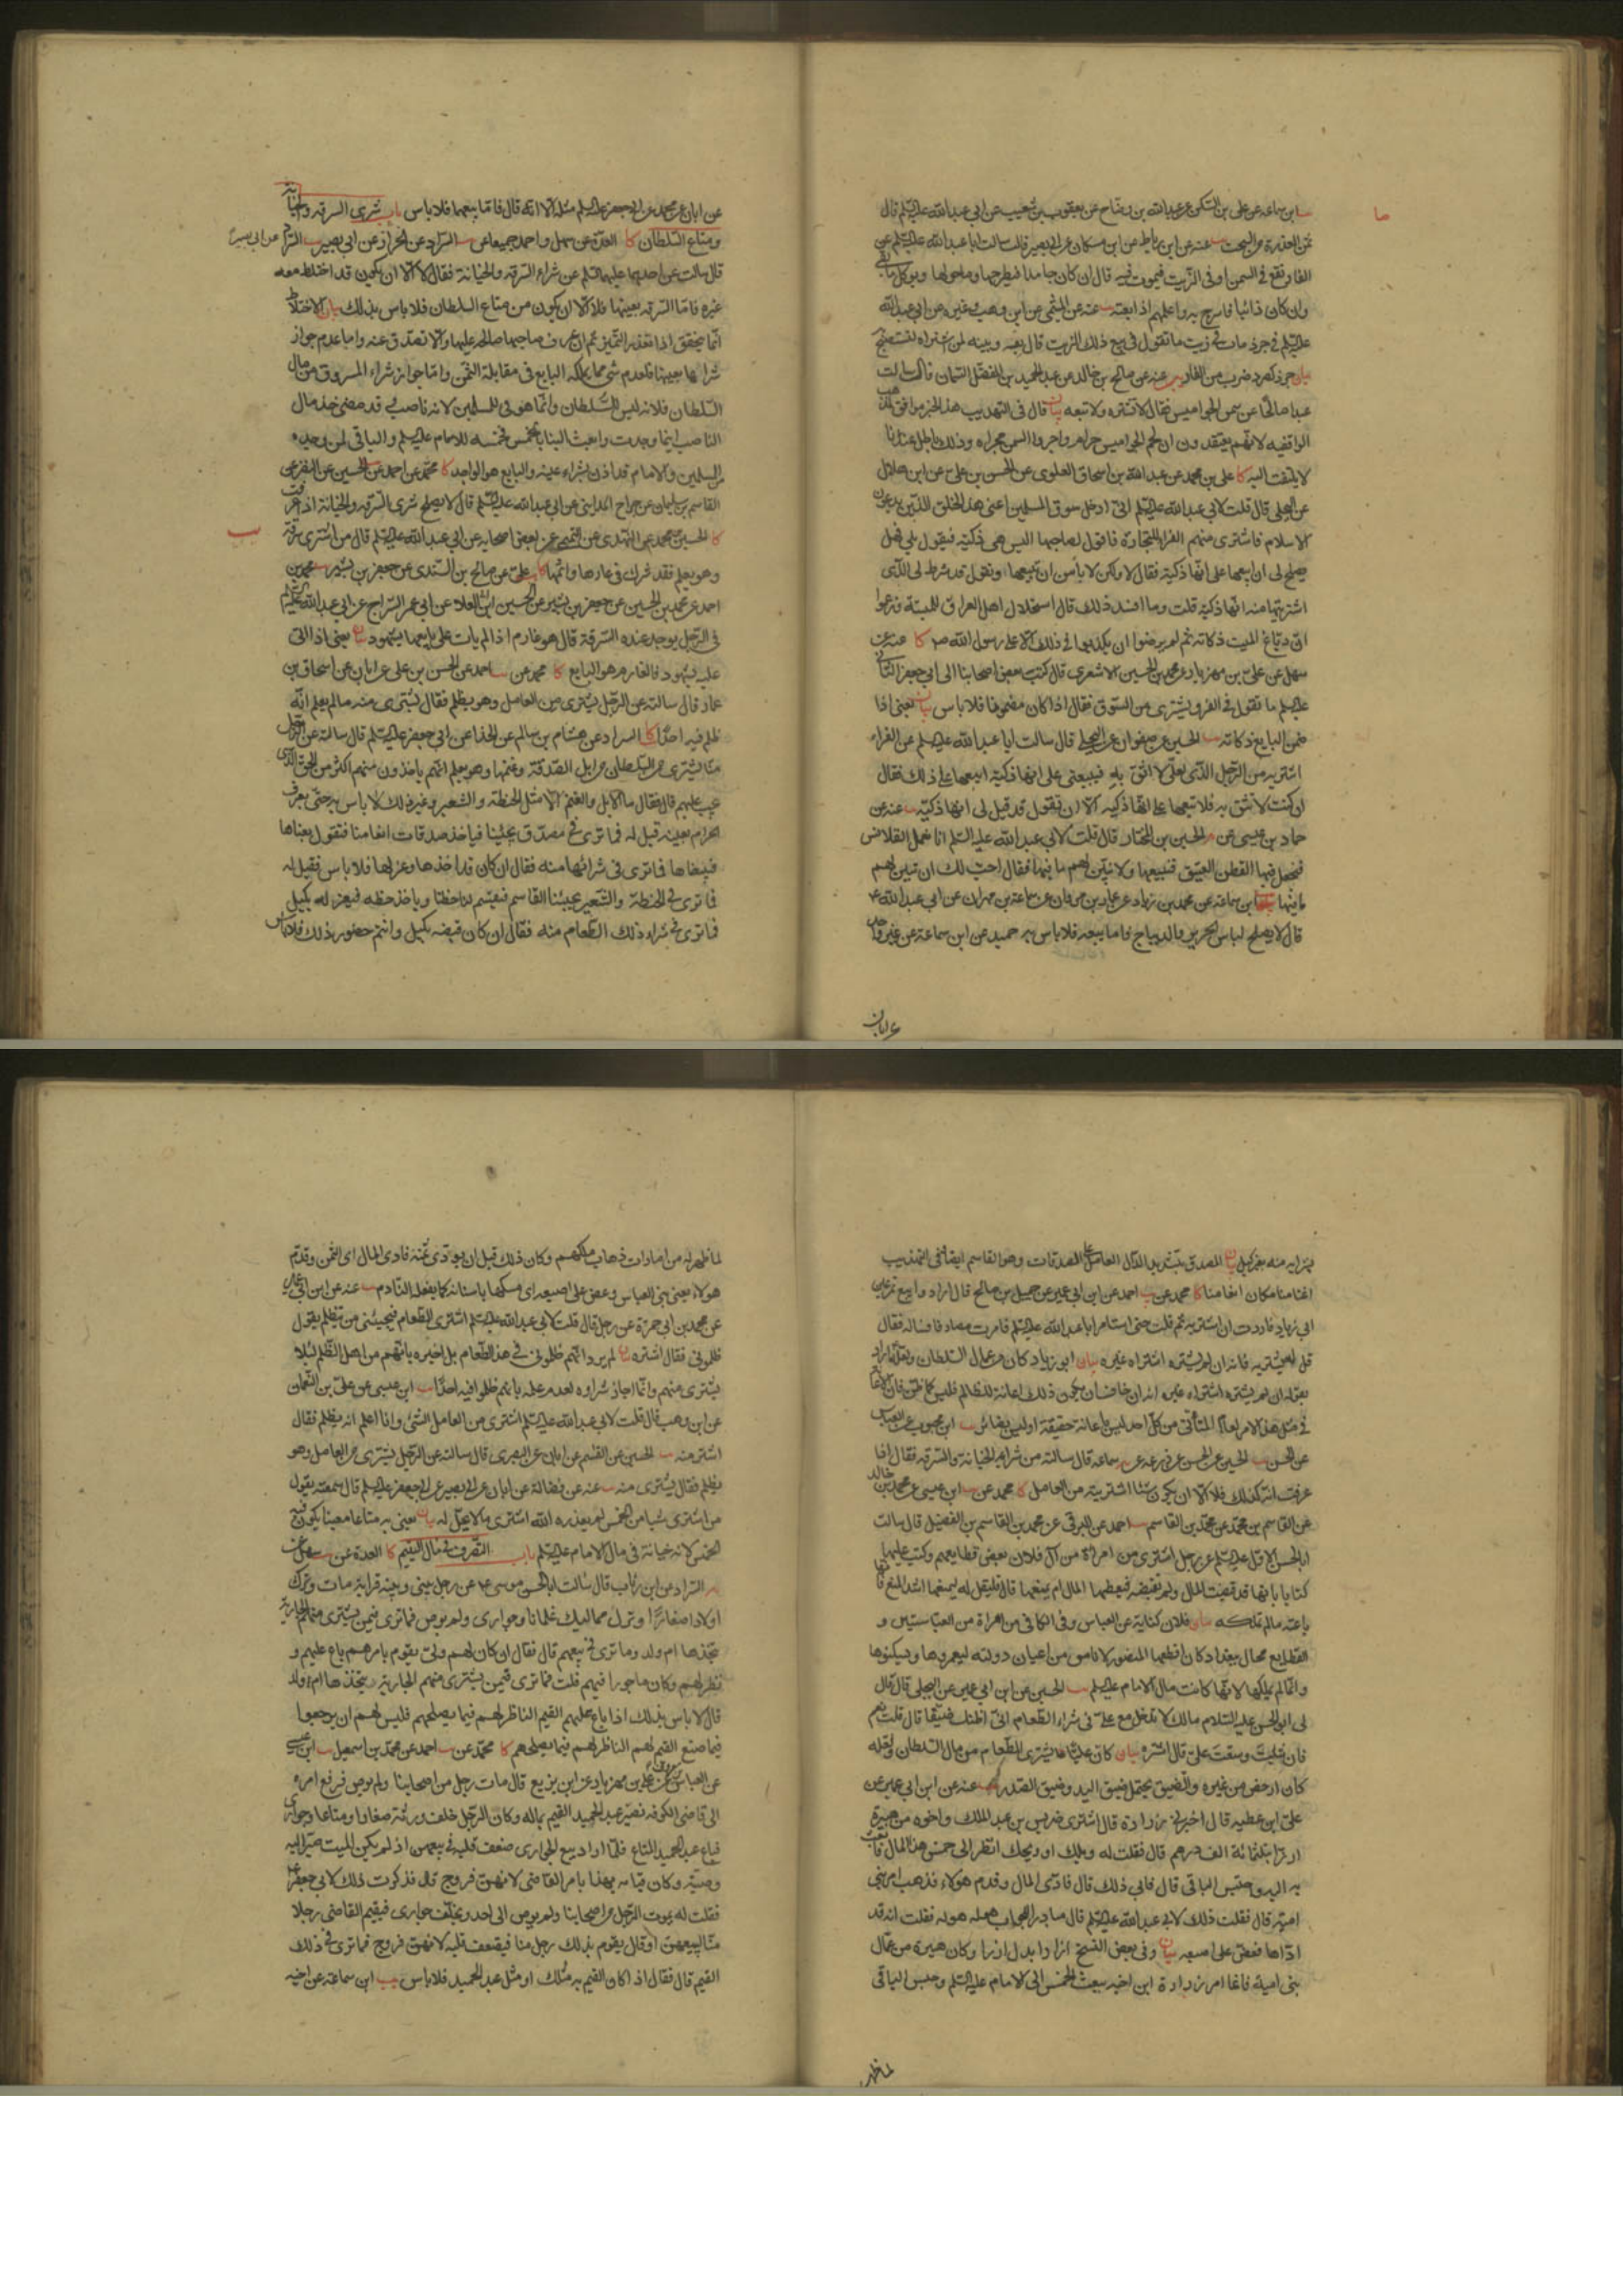 ابن سماعة عن علي بن السكن عن عبدالله بن وضاح عن يعقوب بن شعيب عن ابي عبدالله عليه السلم قال
ثمن العذرة من السحت عنه عن ابن رباط عن ابن مسكان عن ابي بصير قال سالت ابا عبدالله عليه السلم عن
الفارة تقع في السمن او في الزيت فيموت فيه قال ان كان جامدا فيطرحها وما حولها ويوكل ما بقي
وان كان ذائبا فاسرج به واعلمهم اذا بعته عنه عن الميثمي عن ابن وهب وغيره عن ابي عبدالله
عليه السلم في جرذ مات في زيت ما تقول في بيع ذلك الزيت قال بعه وبينه لمن اشتراه ليستصبح
بيان جرذ كصرد ضرب من الفار عنه عن صالح بن خالد عن عبد الحميد بن المفضل السمان قال سالت
عبدا صالحا عن سمن الجواميس فقال لا تشتره ولا تبعه بيان قال في التهذيب هذا الخبر موافق لمذهب
الواقفيه لانهم يعتقدون ان لحم الجواميس حرام واجروا السمن مجراه وذلك باطل عندنا
لا يلتفت اليه كا علي بن محمد عن عبدالله بن اسحاق العلوي عن الحسن بن علي عن
قال قلت لابي عبدالله عليه السلم اني ادخل سوق المسلمين اعني هذا الخلق الذين يدعون
الاسلام فاشتري منهم الفراء للتجارة فاقول لصاحبها اليس هي ذكية فيقول بلى فهل
يصلح لي ان ابيعها على انها ذكية فقال لا ولكن لا باس ان تبيعها وتقول قد شرط لي الذي
اشتريتها منه انها ذكية قلت وما افسد ذلك قال استحلال اهل العراق للميتة وزعموا
ان دباغ الميت ذكاته ثم لم يرضوا ان يكذبوا في ذلك الا على رسول الله ص كا عنه عن
سهل عن علي بن مهزيار عن محمد بن الحسين الاشعري قال كتب بعض اصحابنا الى ابي جعفر الثاني
عليه السلم ما تقول في الفرو يشترى من السوق فقال اذا كان مضمونا فلا باس بيان يعني اذا
ضمن البايع ذكاته الحسين عن صفوان عن البجلي قال سالت ابا عبدالله عليه السلم عن الفراء
اشتريه من الرجل الذي لعلي لا اثق به فيبيعني على انها ذكية ابيعها على ذلك فقال
ان كنت لا تثق به فلا تبعها على انها ذكية الا ان تقول قد قيل لي انها ذكية عنه عن
حماد بن عيسى عن الحسين بن المختار قال قلت لابي عبدالله عليه السلم انا نعمل القلانس
فنجعل فيها القطن العتيق فنبيعها ولا نبين لهم ما فيها فقال احب لك ان تبين لهم
ما فيها ابن سماعة عن محمد بن زياد عن عباد بن عن سماعة بن مهران عن ابي عبدالله ع
قال لا يصلح لباس الحرير والديباج فاما بيعه فلا باس به حميد عن ابن سماعة عن غير واحد
عن ابان
عن ابان عن محمد عن ابي جعفر عليه السلم مثله الا انه قال فاما بيعهما فلا باس باب شرى السرقه والخيانة
ومتاع السلطان كا العدة عن سهل واحمد جميعا عن السراد عن الخراز عن ابي بصير السراد عن ابي بصير
قال سالت عن احدهما عليهما السلم عن شراء السرقه والخيانة فقال لا الا ان يكون قد اختلط معه
غيره فاما السرقه بعينها فلا الا ان يكون من متاع السلطان فلا باس بذلك بيان الاختلاط
انما يتحقق اذا تعذر التميز ثم ان عرف صاحبها صالحه عليها والا تصدق عنه واما عدم جواز
شرائها بعينها فلعدم شي مما يملكه البايع في مقابلة الثمن واما جواز شراء المسروق من مال
السلطان فلانه ليس للسلطان وانما هو في للمسلمين لانه ناصب وقد مضى خذ مال
الناصب اينما وجدت وابعث الينا بالخمس فخمسه للامام عليه السلم والباقي لمن وجده
من المسلمين والامام قد اذن بشراء عينه والبايع هو الواجد كا محمد عن احمد عن الحسين عن النضر عن
القاسم بن سليمان عن جراح المدايني عن ابي عبدالله عليه السلم قال لا يصلح شرى السرقه والخيانة اذا عرفت
كا الحسين بن محمد عن النهدي عن بعض اصحابه عن ابي عبدالله عليه السلم قال من اشترى سرقة
وهو يعلم فقد شرك في عارها واثمها كا علي عن صالح بن السندي عن جعفر بن بشير محمد بن
احمد عن محمد بن الحسين عن جعفر بن بشير عن الحسين ابن ابي العلاء عن ابي عمر السراج عن ابي عبدالله عليه السلم
في الرجل يوجد عنده السرقة قال هو غارم اذا لم يات على بايعها بشهود بيان يعني اذا اتى
عليه بشهود فالغارم هو البايع كا محمد عن احمد عن الحسن بن علي عن ابان عن اسحاق بن
عمار قال سالته عن الرجل يشترى من العامل وهو يظلم فقال يشتري منه ما لم يعلم انه
ظلم فيه احدا كا السراد عن هشام بن سالم عن الحذاء عن ابي جعفر عليه السلم قال سالته عن الرجل
منا يشتري من السلطان من ابل الصدقة وغنمها وهو يعلم انهم ياخذون منهم اكثر من الحق الذي
يجب عليهم قال فقال ما الابل والغنم الا مثل الحنطة والشعير وغير ذلك لا باس به حتى يعرف
الحرام بعينه قيل له فما ترى في مصدق يجيئنا فياخذ صدقات اغنامنا فنقول بعناها
فيبيعناها فما ترى في شرائها منه فقال ان كان قد اخذها وعزلها فلا باس فقيل له
فما ترى في الحنطة والشعير يجيئنا القاسم فيقسم لنا حظنا وياخذ حظه فيعزله بكيل
فما ترى في شراء ذلك الطعام منه فقال ان كان قبضه بكيل وانتم حضور ذلك فلا باس
بشرائه منه بغير كيل بيان المصدق بتشديد الدال العامل على الصدقات وهو القاسم ايضا في التهذيب
اغنامنا مكان انعامنا كا محمد عن احمد عن ابن ابي عمير عن جميل بن صالح قال ارادوا بيع تمر عين
ابي زياد فاردت ان اشتريه ثم قلت حتى استامر ابا عبدالله عليه السلم فامرت مصادفا فساله فقال
قل له يشتريه فانه ان لم يشتره اشتراه غيره بيان ابو زياد كان من عمال السلطان ولعله اراد
بقوله ان لم يشتره اشتراه غيره انه ان خاف ان يكون ذلك اعانة للظالم فليس كما ظن فان الاعانة
في مثل هذا الامر العام المتاتي من كل احد ليس باعانة حقيقة او ليس بضائر ابن محبوب عن العباس
عن الحسن الحسين عن الحسن عن زرعه عن سماعة قال سالته من شراء الخيانة والسرقه فقال اذا
عرفت انه كذلك فلا الا ان يكون شيئا اشتريته من العامل كا محمد عن ابن عيسى عن محمد بن خالد
عن القاسم بن محمد عن محمد بن القاسم احمد عن البرقي عن محمد بن القاسم بن الفضيل قال سالت
ابا الحسن الاول عليه السلم عن رجل اشترى من امراة من آل فلان بعض قطايعهم وكتب عليها
كتابا بانها قد قبضت المال ولم تقبضه فيعطيها المال ام يمنعها قال فليقل له ليمنعها اشد المنع فانها
باعته ما لم تملكه بيان فلان كناية عن العباس وفي الكافي من امراة من العباسيين و
القطايع محال ببغداد كان اقطعها المنصور لاناس من اعيان دولته ليعمروها ويسكنوها
وانما لم يملكها لانها كانت مال الامام عليه السلم الحسين عن ابن ابي عمير عن البجلي قال قال
لي ابو الحسن عليه السلام مالك لا تدخل مع علي في شراء الطعام اني اظنك ضيقا قال قلت نعم
فان شئت وسعت علي قال اشتره بيان كان علي هذا يشتري الطعام من مال السلطان ولعله
كان ارخص من غيره والضيق يحتمل ضيق اليد وضيق الصدر عنه عن ابن ابي عمير عن
علي ابن عطيه قال اخبرني زرارة قال اشترى ضريس بن عبد الملك واخوه من هبيرة
ارزا بثلثمائة الف درهم قال فقلت له ويلك او ويحك انظر الى خمس هذا المال فابعث
به اليه واحتبس الباقي قال فابى ذلك قال فادى المال وقدم هولاء فذهب امر بني
اميه قال فقلت ذلك لابي عبدالله عليه السلم قال مبادرا للجواب هو له هو له فقلت انه قد
اداها فعض على اصبعه بيان وفي بعض النسخ ازارا بدل ارزا وكان هبيرة من عمال
بني امية فانما امر زرارة ابن اخيه ببعث الخمس الى الامام عليه السلم وحبس الباقي
لما ظهر
لما ظهر له من امارات ذهاب ملكهم وكان ذلك قبل ان يودي ثمنه فادى المال اى الثمن وقدم
هولاء يعني بني العباس وعض على اصبعه اى مسكها باسنانه كما يفعله النادم عنه عن ابن ابي عمير
عن محمد بن ابي حمزة عن رجل قال قلت لابي عبدالله عليه السلم اشترى الطعام فيجيئني من يتظلم يقول
ظلموني فقال اشتره بيان لم يرد انهم ظلموني في هذا الطعام بل اخبره بانهم من اهل الظلم لئلا
يشتري منهم وانما اجاز شراوه لعدم علمه بانهم ظلموا فيه احدا ابن عيسى عن علي بن النعمان
عن ابن وهب قال قلت لابي عبدالله عليه السلم اشتري من العامل الشئ وانا اعلم انه يظلم فقال
اشتر منه الحسين عن القسم عن ابان عن البصري قال سالته عن الرجل يشتري من العامل وهو
يظلم فقال يشترى منه عنه عن فضالة عن ابان عن ابي بصير عن ابي جعفر عليه السلم قال سمعته يقول
من اشترى شيئا من الخمس لم يعذره الله اشترى ما لا يحل له بيان يعني به متاعا معينا يكون فيه
الخمس لانه خيانة في مال الامام عليه السلم باب التصرف في مال اليتيم كا العدة عن سهل عن
السراد عن ابن رئاب قال سالت ابا الحسن موسى ع عن رجل بيني وبينه قرابة مات وترك
اولادا صغارا وترك مماليك غلمانا وجواري ولم يوص فما ترى فيمن يشتري منهم الجارية
يتخذها ام ولد وما ترى في بيعهم قال فقال ان كان لهم ولي يقوم بامرهم باع عليهم و
نظر لهم وكان ماجورا فيهم قلت فما ترى فيمن يشتري منهم الجارية يتخذها ام ولد
قال لا باس بذلك اذا باع عليهم القيم الناظر لهم فيما يصلحهم فليس لهم ان يرجعوا
فيما صنع القيم لهم الناظر لهم فيما يصلحهم كا محمد عن احمد عن محمد بن اسمعيل ابن عيسى
عن العباس بن معروف عن علي بن مهزيار عن ابن بزيع قال مات رجل من اصحابنا ولم يوص فرفع امره
الى قاضي الكوفه فصير عبد الحميد القيم بماله وكان الرجل خلف ورثة صغارا ومتاعا وجواري
فباع عبد الحميد المتاع فلما اراد بيع الجواري ضعف قلبه في بيعهن اذ لم يكن الميت صير اليه
وصيته وكان قيامه بهذا بامر القاضي لانهن فروج قال فذكرت ذلك لابي جعفر ع
فقلت له يموت الرجل من اصحابنا ولم يوص الى احد ويخلف جواري فيقيم القاضي رجلا
منا لبيعهن او قال يقوم بذلك رجل منا فيضعف قلبه لانهن فروج فما ترى في ذلك
القيم قال فقال اذا كان القيم به مثلك او مثل عبد الحميد فلا باس ابن سماعة عن اخيه